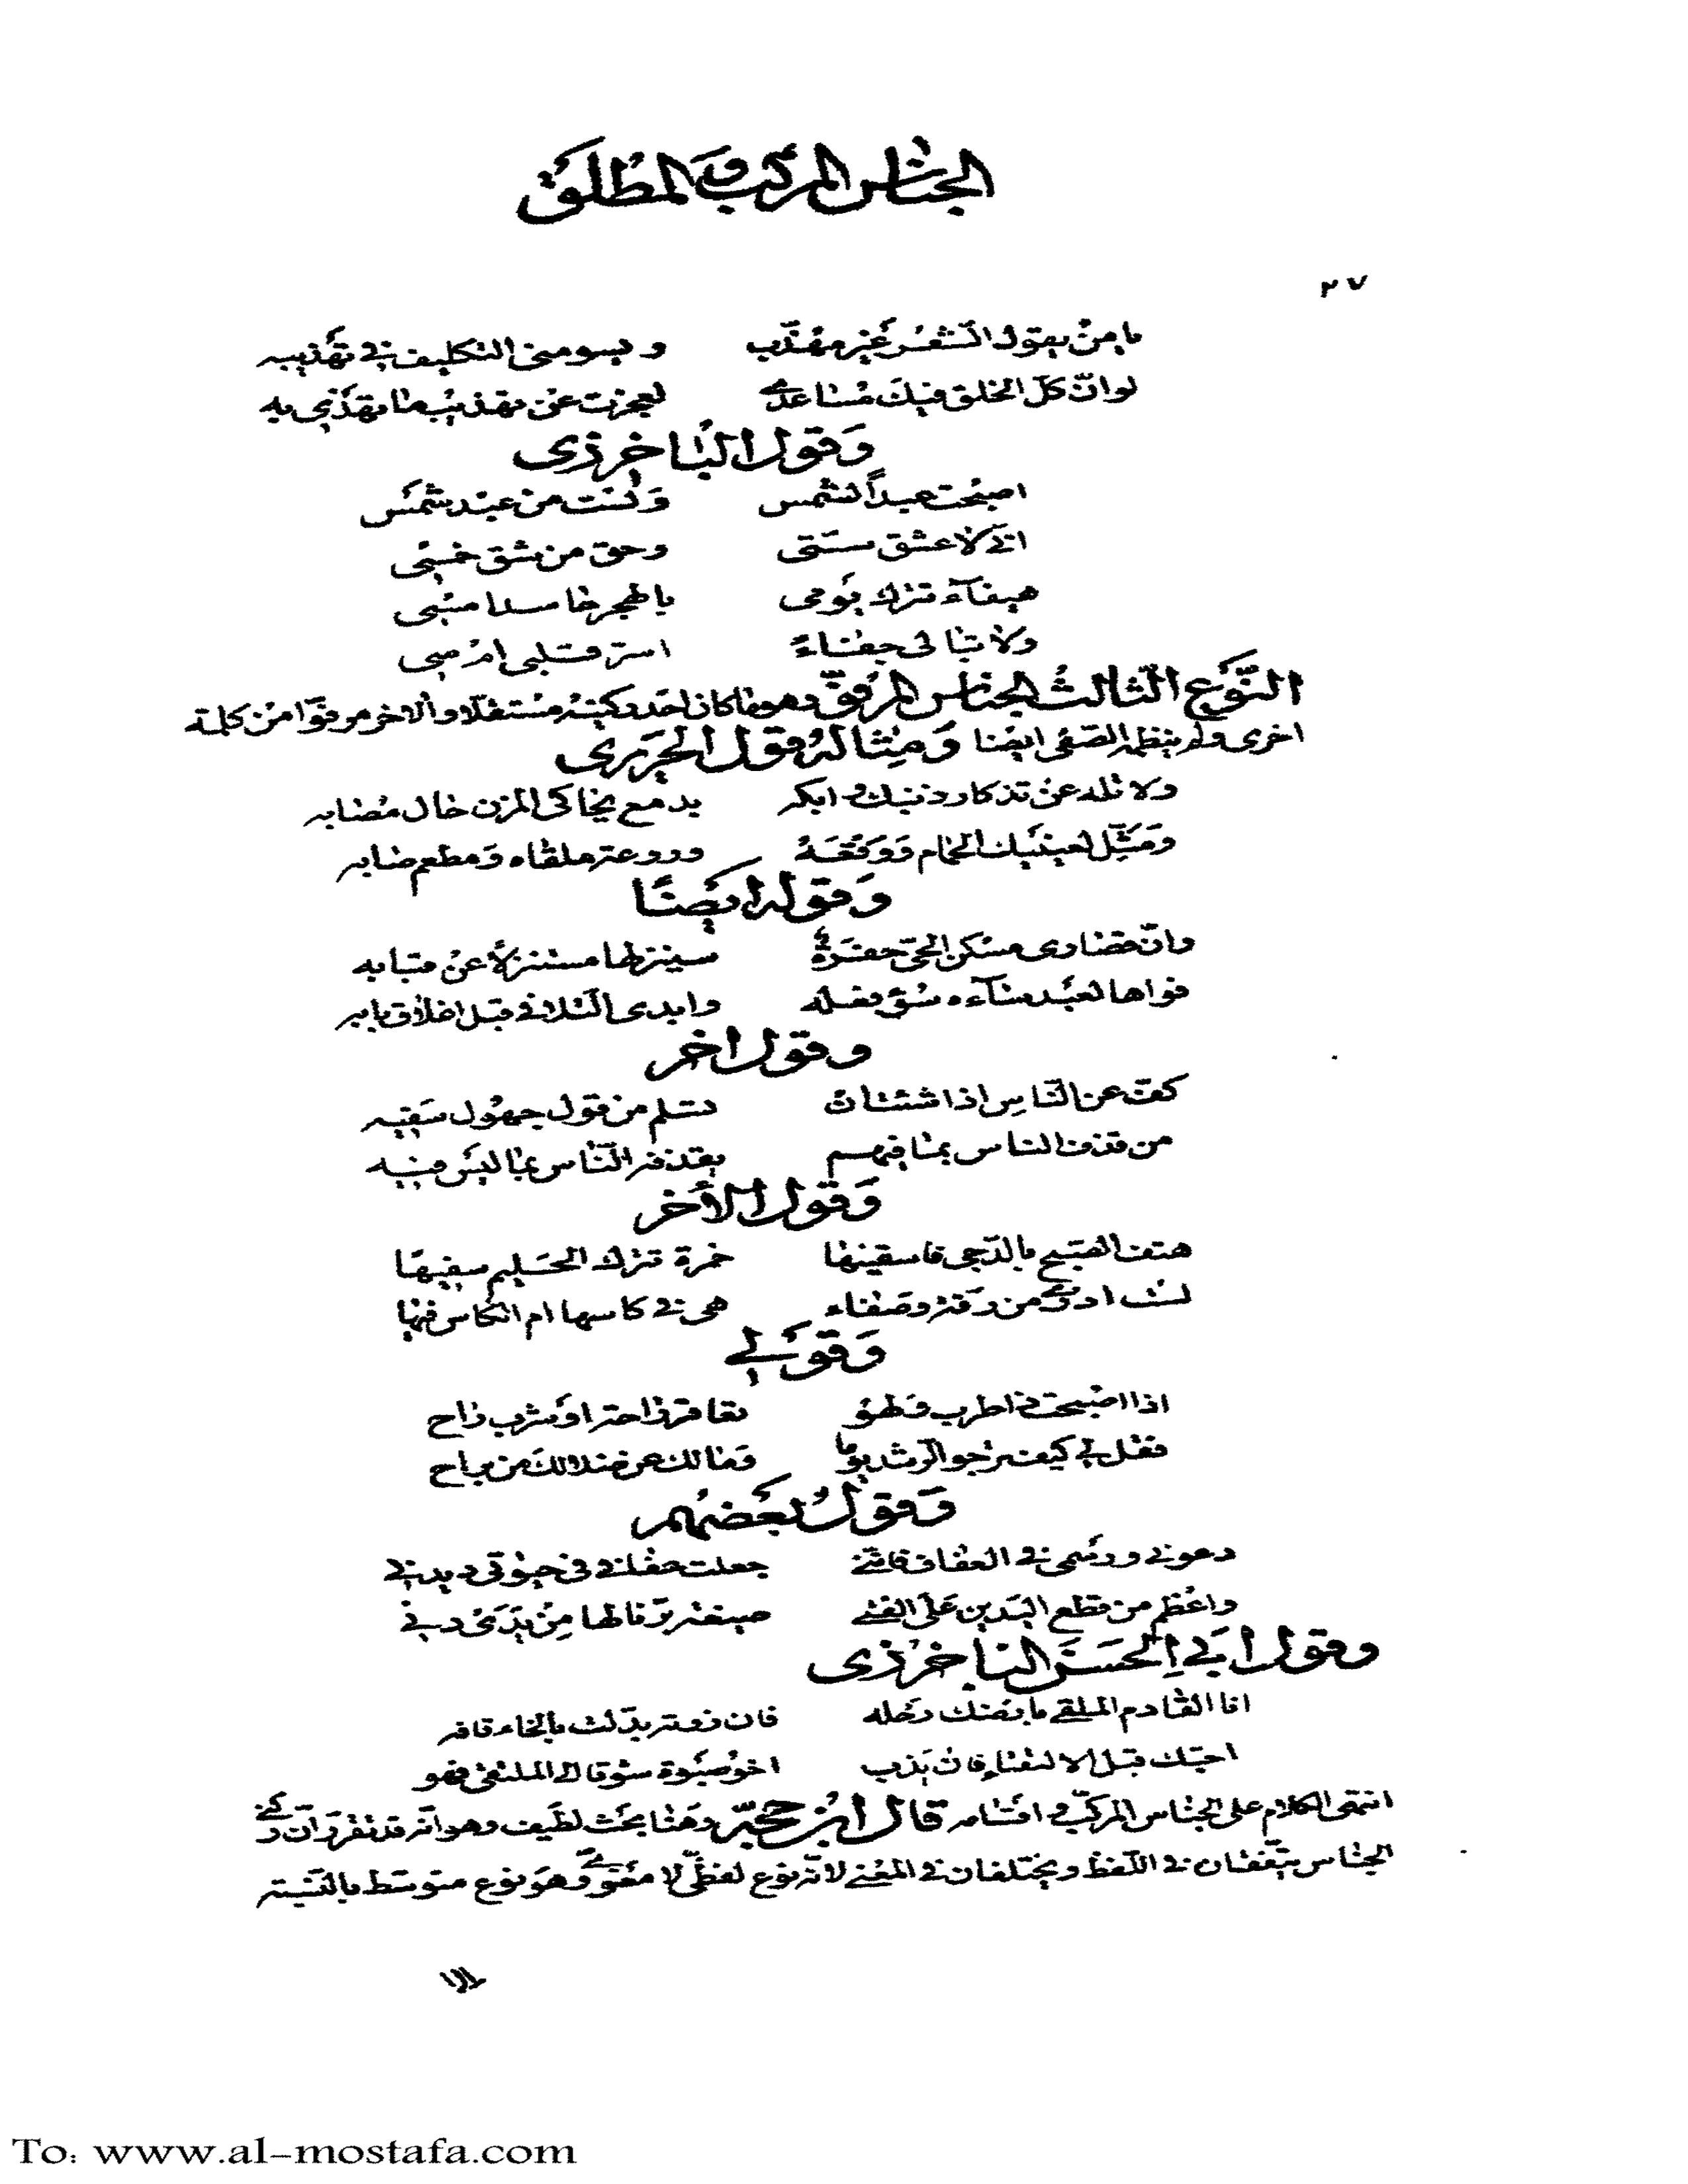 الجناس المركب والمطلق
٢٧
يا من يقول الشعر غير مهذب ويسومني التكليف في تهذيبه
لو انّ كلّ الخلق فيك مساعدي لعجزت عن تهذيب ما تهذي به
وقول الباخرزي
اصبحت عبداً لشمس ولست من عبد شمس
اني لاعشق ستي وحق من شق خمسي
هيفآء تترك يومي
ولا تبالي جفاءً استر قلبي ام سي
النّوع الثالث الجناس المرفوّ وهو ما كان احد ركنيه مستقلّا والاخر مرفوّا من كلمة
اخرى ولم ينظمه الصفي ايضا ومثاله قول الحريري
ولا تله عن تذكار ذنبك وابكه بدمع يحاكي المزن حال مصابه
ومثّل لعينيك الحمام ووقعه وروعة ملقاه ومطعم صابه
وقوله ايضًا
وانّ قصارى مسكن الحيّ حفرة سينزلها مستنزلاً عن قبابه
فواها لعبد سآءه سوء فعله وابدى التلافي قبل اغلاق بابه
وقول اخر
كفّ عن النّاس اذا شئت ان تسلم من قول جهول سفيه
من قذف الناس بما فيهم يقذفه النّاس بما ليس فيه
وقول الاخر
هتف الصبح بالدّجى فاسقينها خمرة تترك الحليم سفيها
لست ادري من رقة وصفاء هي في كاسها ام الكاس فيها
وقولي
اذا اصبحت في طرب ولهو تعاقر في احة او شرب راح
فقل لي كيف ترجو الرّشد يوما وما لك عن ضلالك من براح
وقول بعضهم
دعوني ورسمي في العفاف فانّني جعلت عفافي في حيوتي ديدني
واعظم من قطع اليدين على الفتى صنيعة برّ نالها من يدي دني
وقول ابي الحسن الباخرزي
انا القادم الملقي بارضك رحله
احبّك قبل الالتقاء
انتهى الكلام على الجناس المركّب واقسامه قال ابن حجّر وهنا بحث لطيف وهو انّه قد تقرّر انّ ركني
الجناس يتّفقان في اللّفظ ويختلفان في المعنى لانّه نوع لفظيّ لا معنويّ وهو نوع متوسّط بالنّسبة
الى
To: www.al-mostafa.com